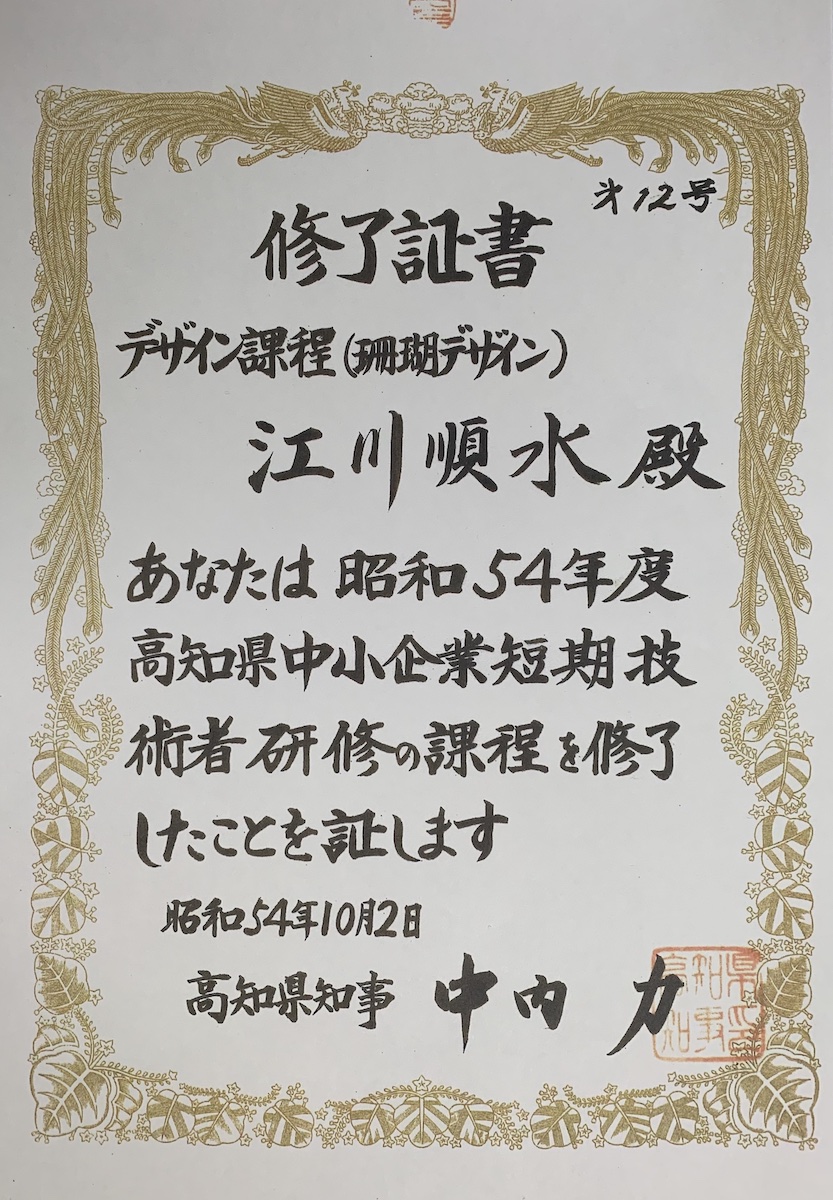 才12号
修了証書
デザイン課程(珊瑚デザイン)
江川順水殿
あなたは昭和54年度
高知県中小企業短期技
術者研修の課程を修了
したことを証します
昭和54年10月2日
高知県知事 中内力
高知県
知事印